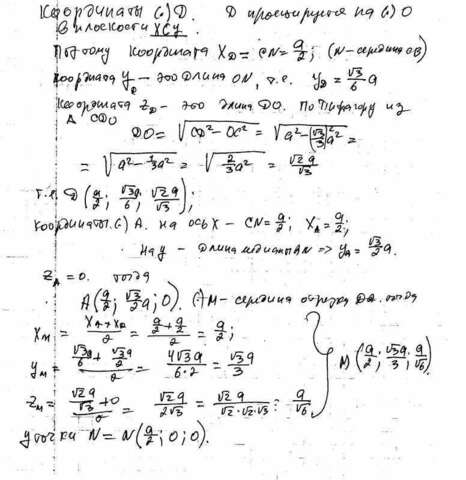 Координаты (·) D. D проецируется на (·) O
в плоскости XCY.
Поэтому координата X_D = CN = a/2; (N - середина CB)
координата y_D - это длина ON, т.е. y_D = √3/6 a
координата z_D - это длина DO. По Пифагору из
Δ CDO
DO = √(CD² - OC²) = √(a² - (√3/3)² a²) =
= √(a² - 1/3 a²) = √(2/3 a²) = √2 a/√3
т.е. D (a/2; √3a/6; √2a/√3);
координаты (·) A. на ось X - CN = a/2; X_A = a/2;
на y - длина медианы AN => y_A = √3/2 a.
z_A = 0. тогда
A (a/2; √3/2 a; 0). (·) M - середина отрезка DA. тогда
X_M = (X_A + X_D)/2 = (a/2 + a/2)/2 = a/2;
y_M = (√3a/6 + √3a/2)/2 = 4√3a/(6·2) = √3a/3
M (a/2; √3a/3; a/√6).
z_M = (√2a/√3 + 0)/2 = √2a/(2√3) = √2a/(√2·√2·√3) = a/√6
у точки N = N (a/2; 0; 0).